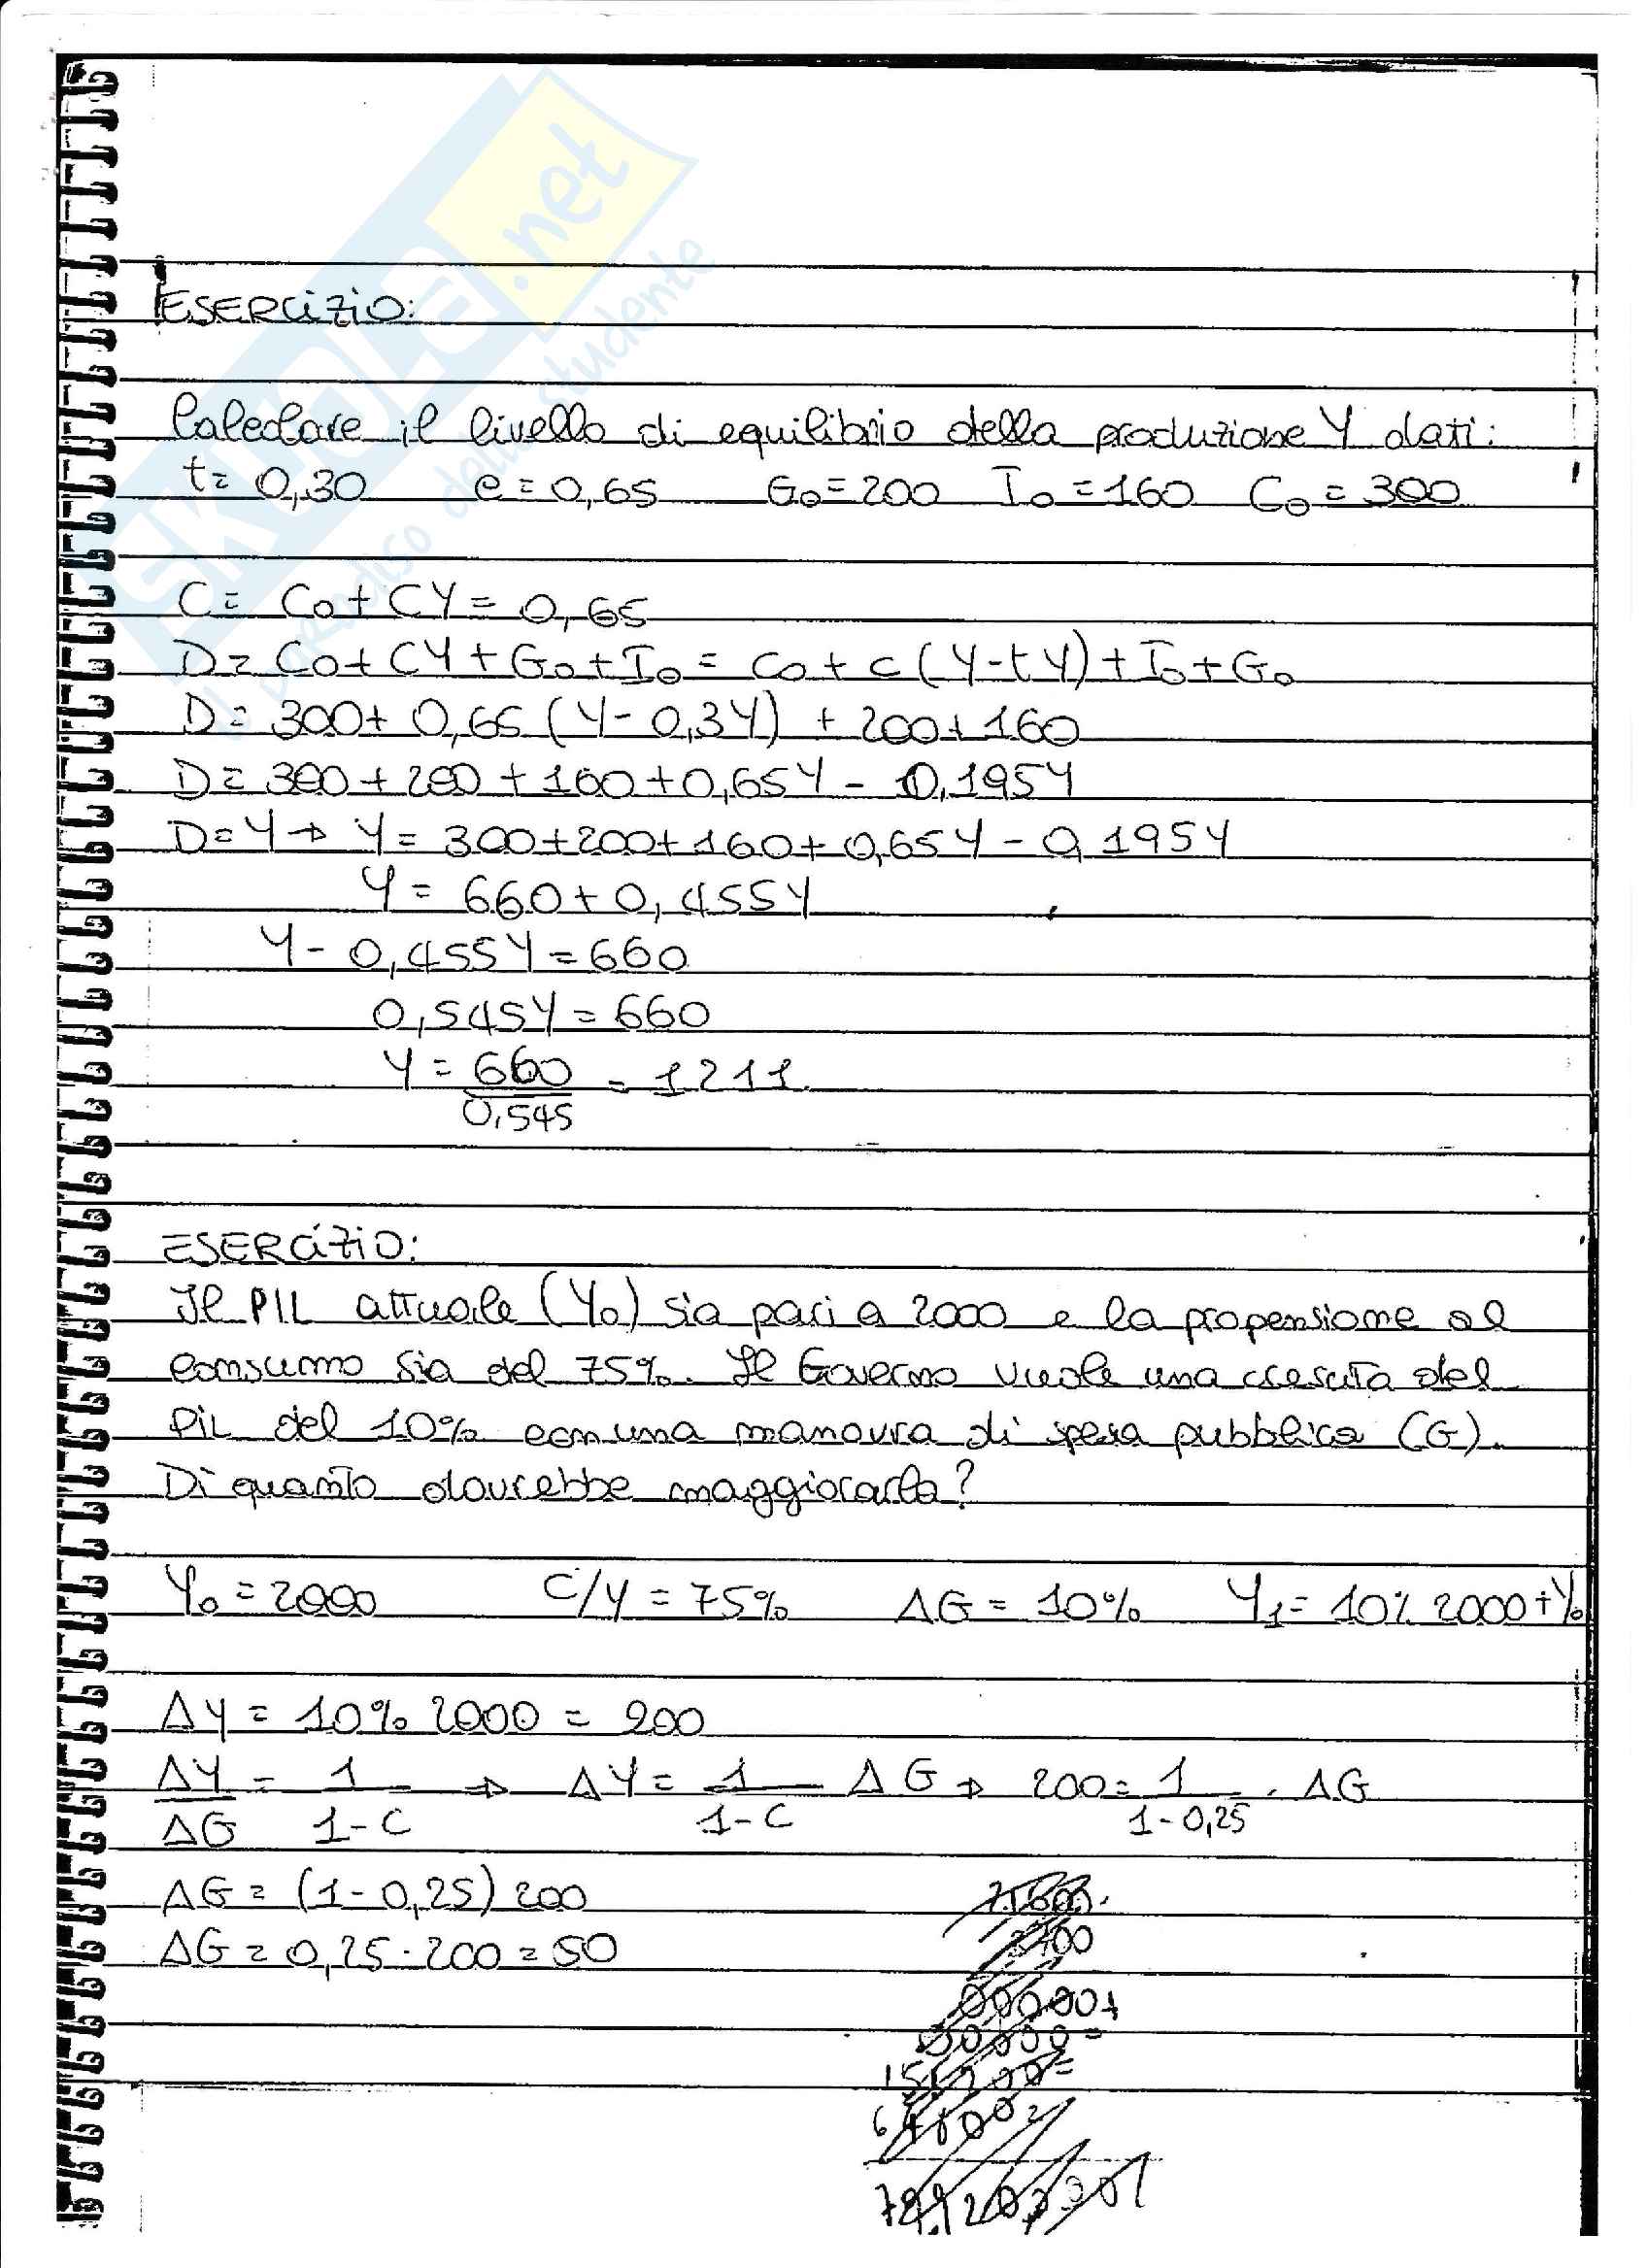 SKUOLA.net
il paradiso dello studente
ESERCIZIO:
Calcolare il livello di equilibrio della produzione Y dati:
t= 0,30 c= 0,65 G0=200 I0=160 C0=300
C= C0+CY= 0,65
D= C0+CY+G0+I0= C0+c(Y-tY)+I0+G0
D= 300+ 0,65 (Y- 0,3Y) + 200+160
D= 300+200+160+0,65Y- 0,195Y
D=Y→ Y= 300+200+160+0,65Y-0,195Y
Y= 660+0,455Y
Y- 0,455Y=660
0,545Y=660
Y= 660/0,545 = 1211
ESERCIZIO:
Il PIL attuale (Y0) sia pari a 2000 e la propensione al
consumo sia del 75%. Il Governo vuole una crescita del
PIL del 10% con una manovra di spesa pubblica (G).
Di quanto dovrebbe maggiorarla?
Y0=2000 C/Y=75% ΔG=10% Y1=10% 2000+Y0
ΔY= 10% 2000= 200
ΔY/ΔG = 1/1-C ⇒ ΔY= 1/1-C ΔG ⇒ 200= 1/1-0,25 · ΔG
ΔG= (1-0,25) 200
ΔG= 0,25·200=50